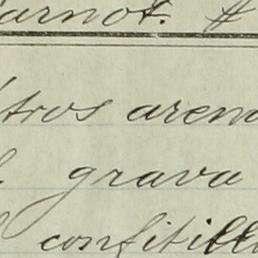 arnot. #
tros arem
grava
confitill